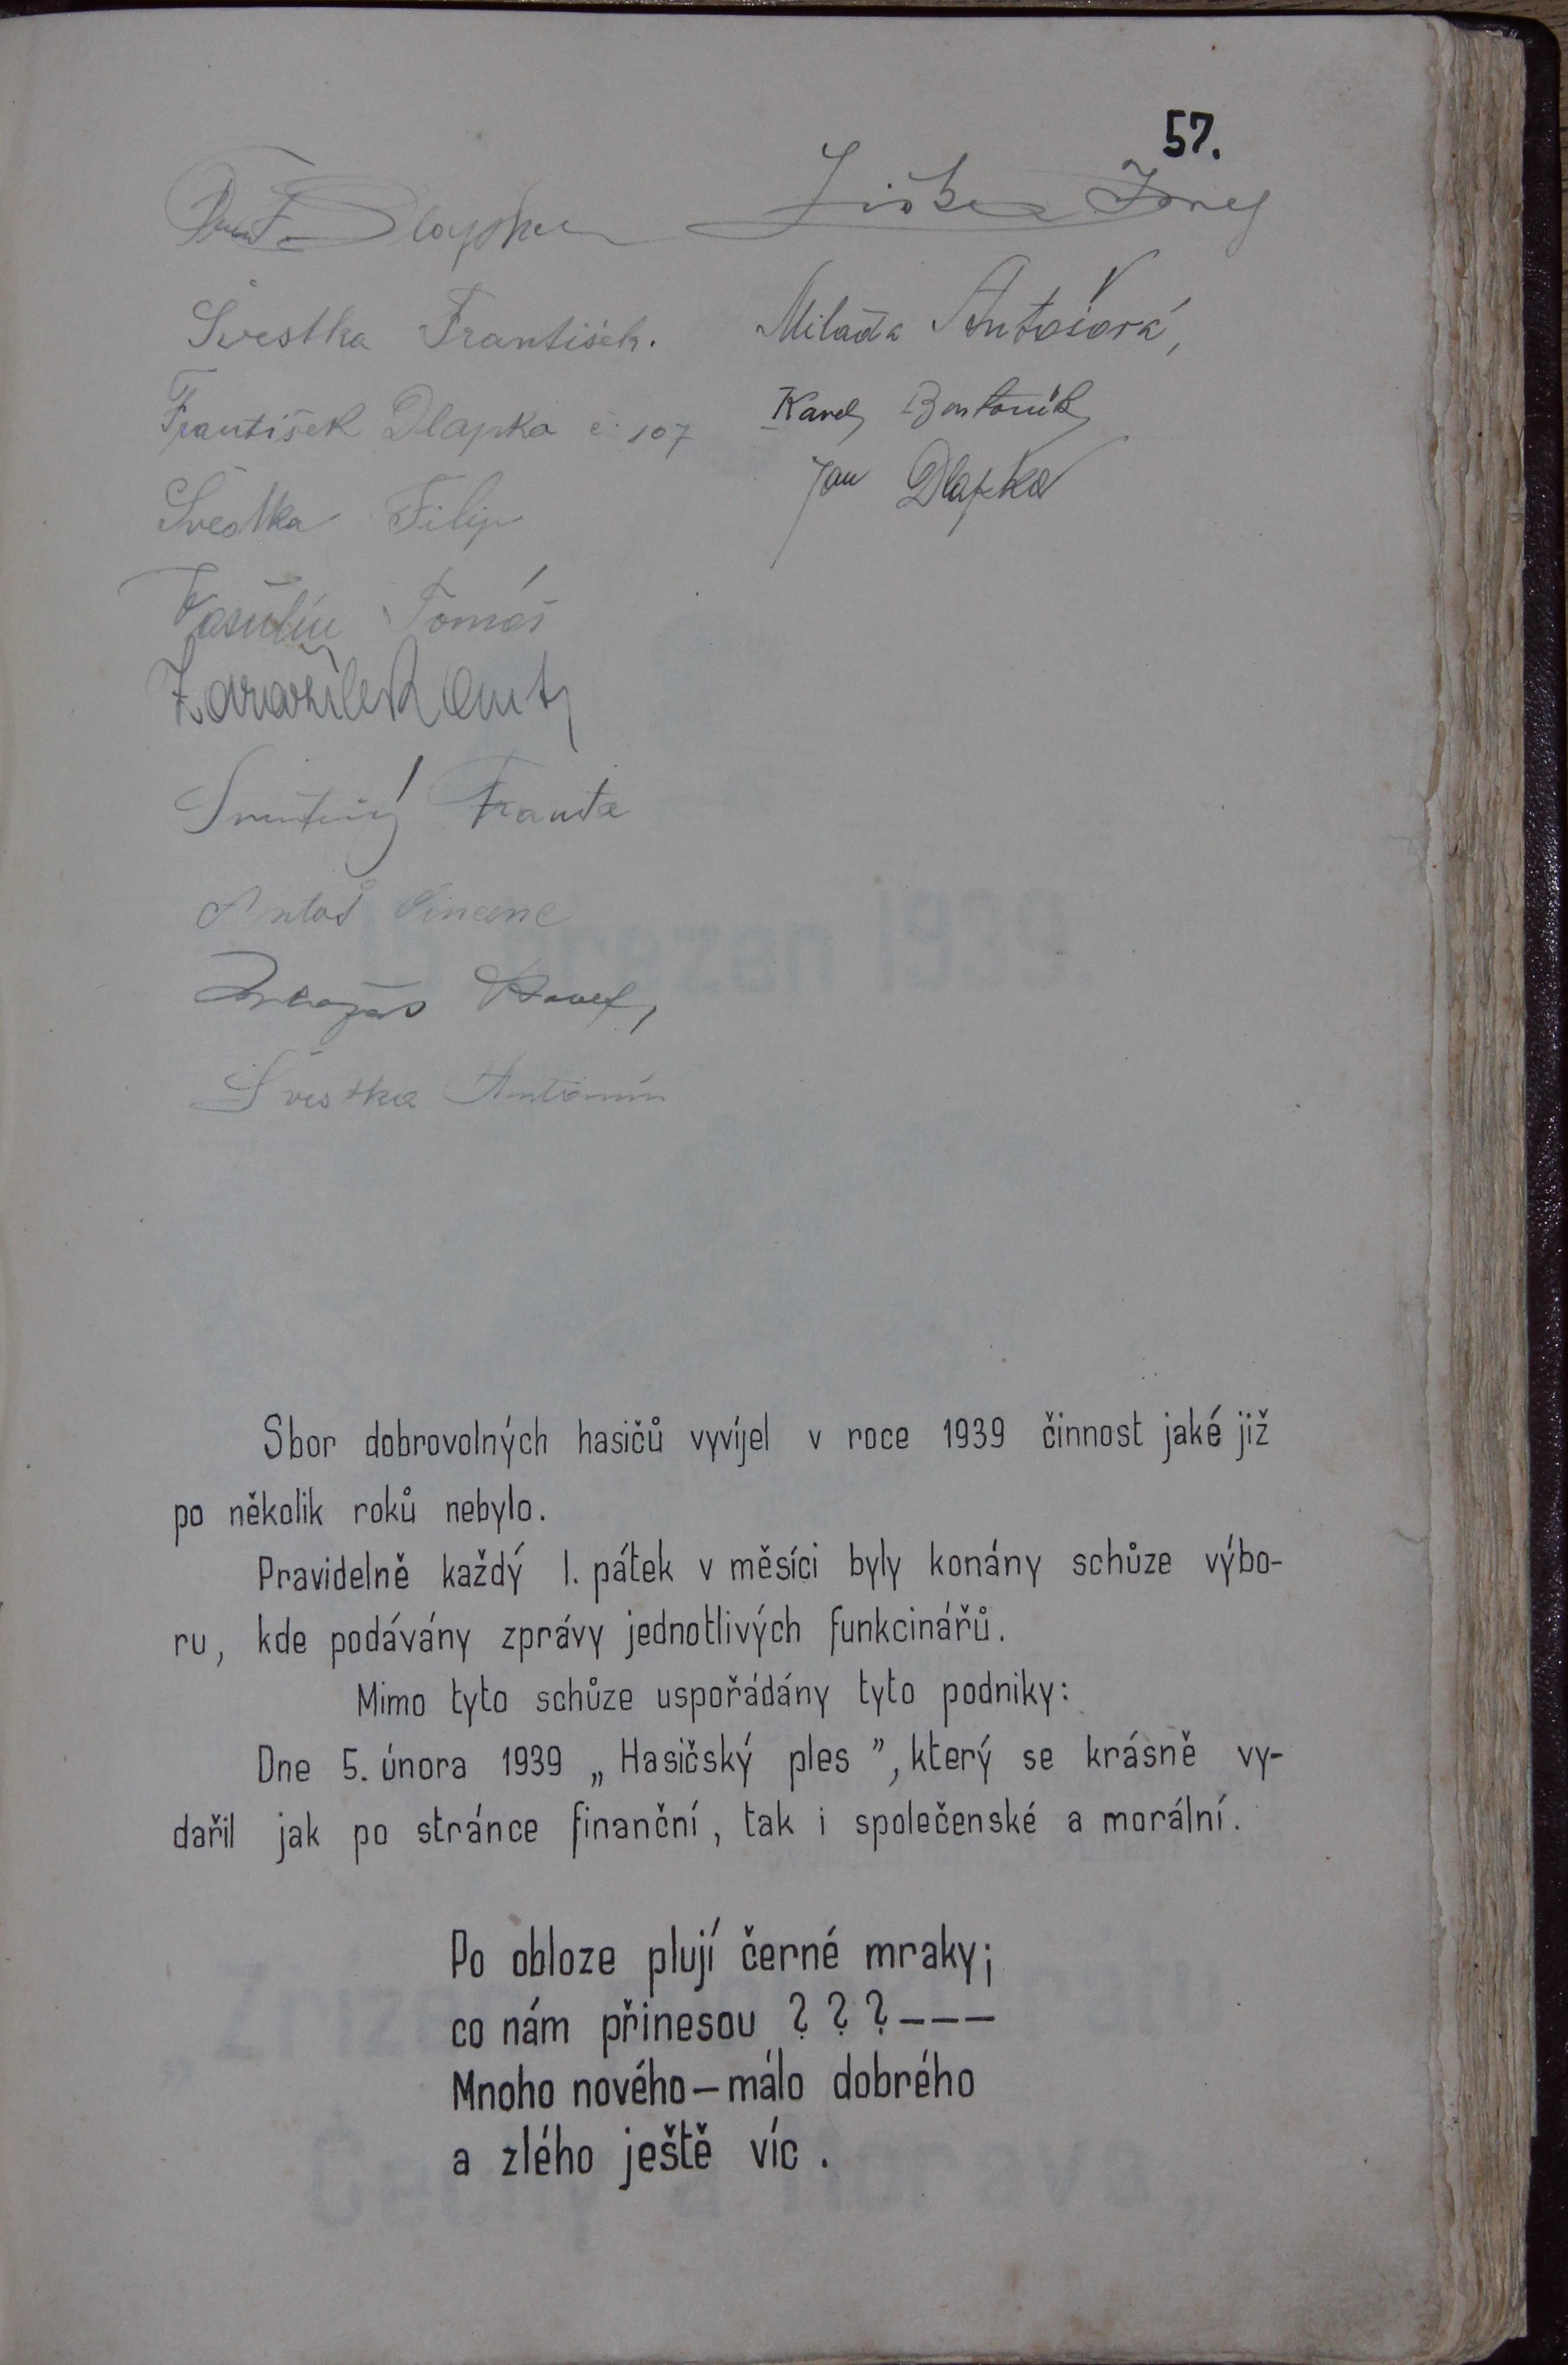 57.
Dlapka
Josef
Švestka František.
Milada Antošová,
František Dlapka č. 107
Karel
Jan Dlapka
Švestka Filip
Vašulín Tomáš
Franta
Antoš Vincenc
Karel,
Švestka Antonín
Sbor dobrovolných hasičů vyvíjel v roce 1939 činnost jaké již
po několik roků nebylo.
Pravidelně každý I. pátek v měsíci byly konány schůze výbo-
ru, kde podávány zprávy jednotlivých funkcinářů.
Mimo tyto schůze uspořádány tyto podniky:
Dne 5. února 1939 „Hasičský ples”, který se krásně vy-
dařil jak po stránce finanční, tak i společenské a morální.
Po obloze plují černé mraky;
co nám přinesou ? ? ? – – –
Mnoho nového – málo dobrého
a zlého ještě víc.